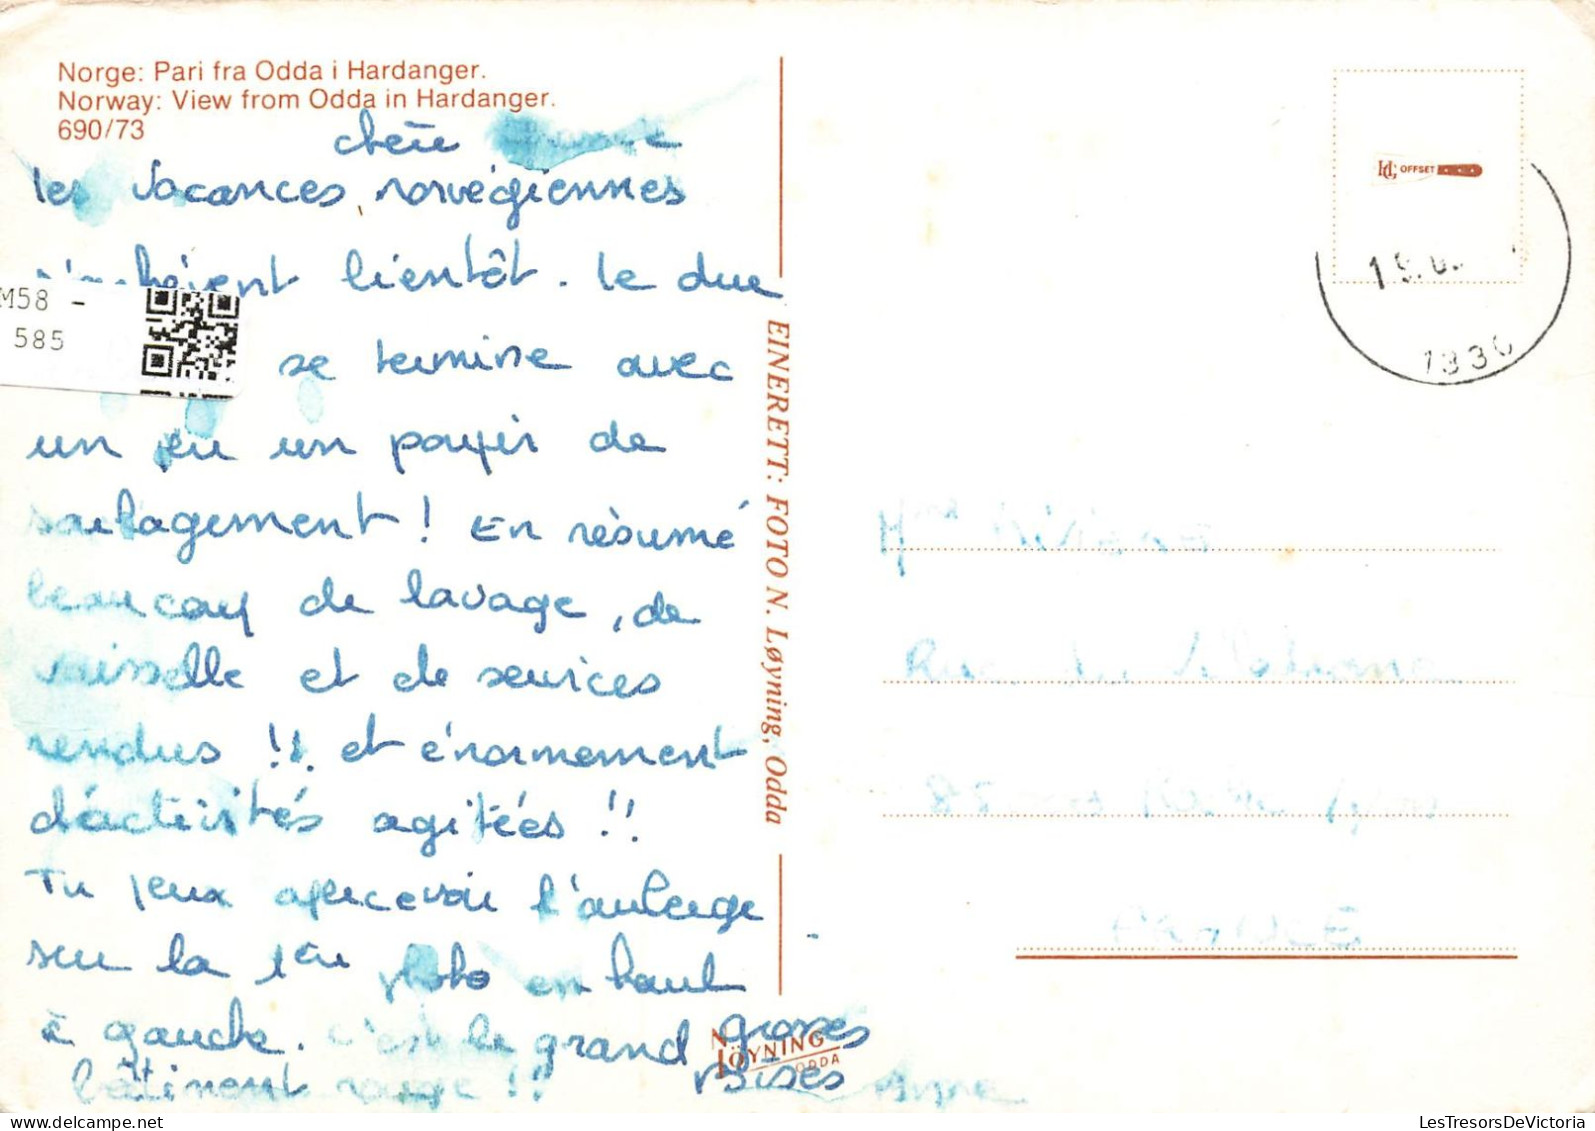 Norge: Pari fra Odda i Hardanger.
Norway: View from Odda in Hardanger.
690/73
chère
les vacances norvégiennes
s'achèvent bientôt. le due
M58 -
585
se termine avec
un peu un poupir de
soulagement ! En résumé
beaucoup de lavage, de
vaisselle et de services
rendus !! et énormément
d'activités agitées !!
Tu peux apercevoir l'auberge
sur la 1ère photo en haut
à gauche. c'est le grand
bâtiment rouge !!
grosses
bises
Anne
EINERETT: FOTO N. Løyning, Odda
N.
LÖYNING
ODDA
HG OFFSET
19.
Mme
Rue
FRANCE
LesTresorsDeVictoria.com